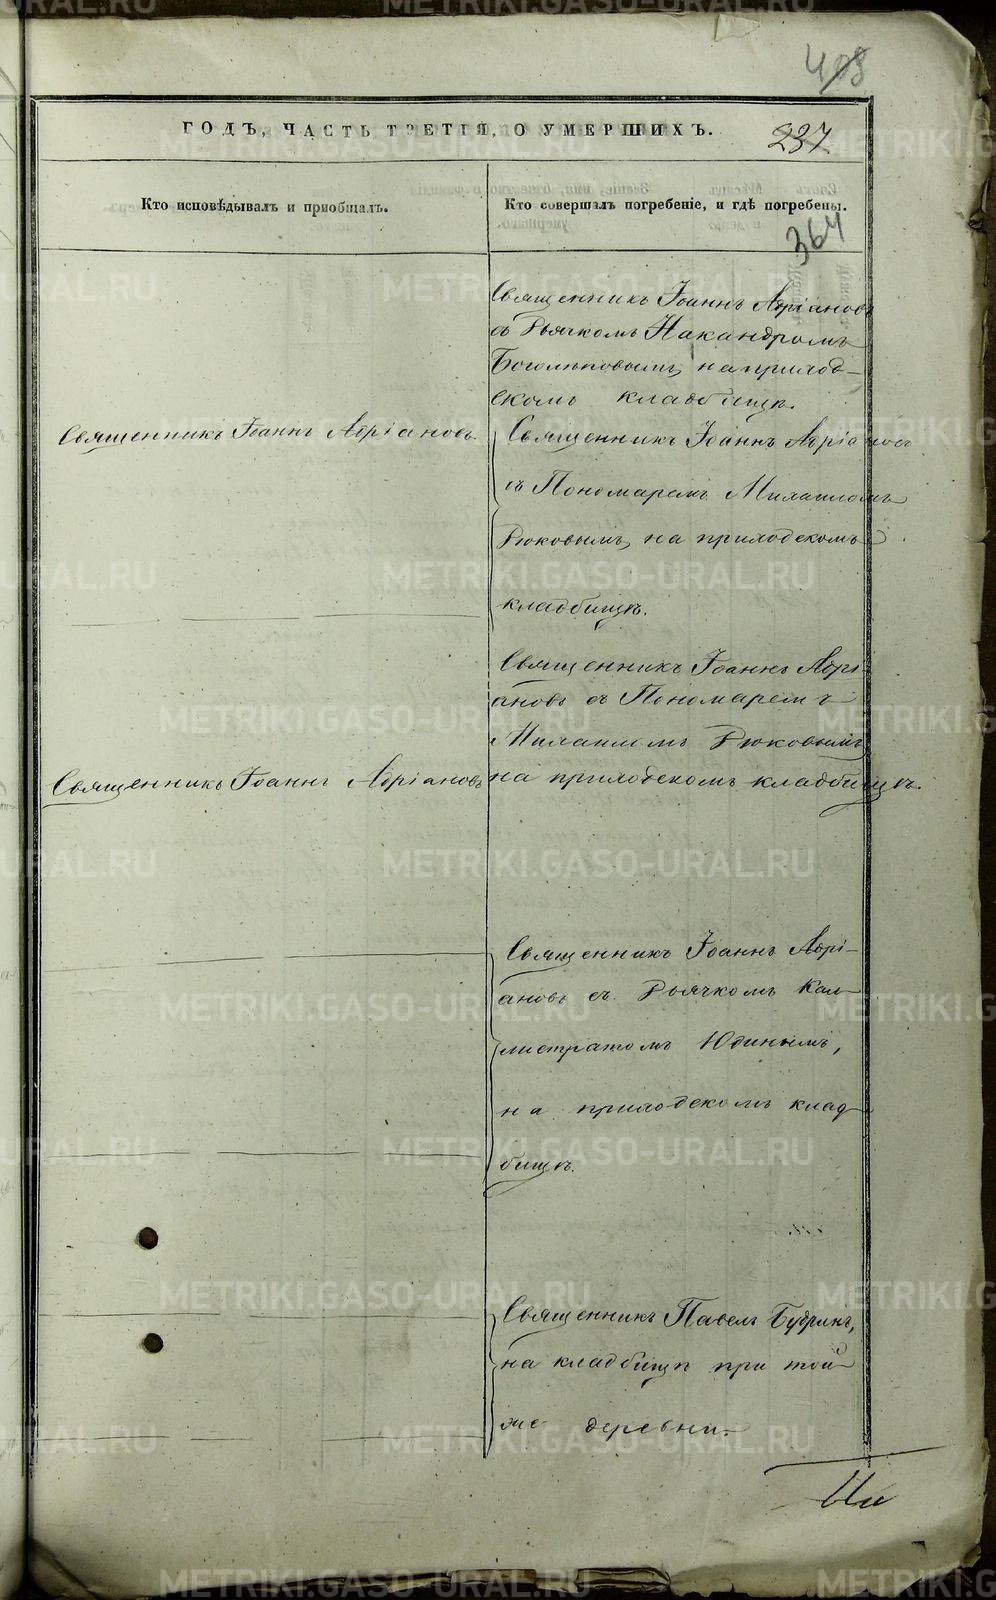 408
ГОДЪ, ЧАСТЬ ТРЕТІЯ, О УМЕРШИХЪ.
237
Кто исповѣдывалъ и пріобщалъ.
Кто совершалъ погребеніе, и гдѣ погребены.
364
Священникъ Іоаннъ Адріановъ
съ Дьячкомъ Накандромъ
Боголѣповымъ, на приход-
скомъ кладбищѣ.
Священникъ Іоаннъ Адріановъ.
Священникъ Іоаннъ Адріановъ
съ Пономаремъ Михаиломъ
Рюковымъ, на приходскомъ
кладбищѣ.
Священникъ Іоаннъ Адрі-
ановъ съ Пономаремъ
Михаиломъ Рюковымъ,
Священникъ Іоаннъ Адріановъ
на приходскомъ кладбищѣ.
Священникъ Іоаннъ Адрі-
ановъ съ Дьячкомъ Кал-
листратомъ Юдинымъ,
на приходскомъ клад-
бищѣ.
Священникъ Павелъ Будринъ,
на кладбищѣ при той
же деревни.
METRIKI.GASO-URAL.RU